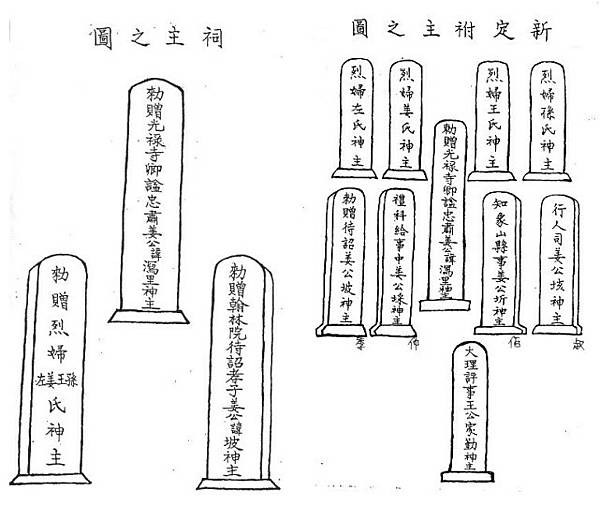 新定祔主之圖
烈婦孫氏神主
烈婦王氏神主
勑贈光祿寺卿謚忠肅姜公諱瀉里神主
烈婦姜氏神主
烈婦左氏神主
行人司姜公垓神主
叔
知象山縣事姜公圻神主
伯
禮科給事中姜公埰神主
仲
勑贈待詔姜公坡神主
季
大理評事王公家勤神主
祠主之圖
勑贈光祿寺卿謚忠肅姜公諱瀉里神主
勑贈翰林院待詔孝子姜公諱坡神主
勑贈烈婦孫王姜左氏神主